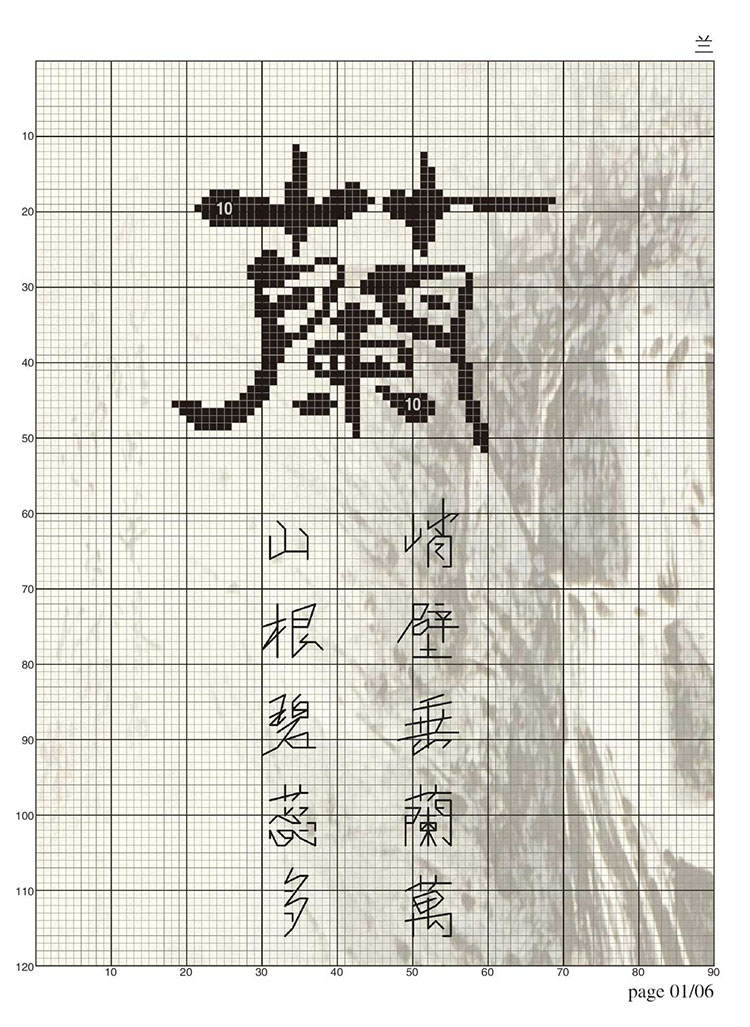 兰
蘭
10
10
峭壁垂蘭萬
山根碧蕊多
10
20
30
40
50
60
70
80
90
100
110
120
10 20 30 40 50 60 70 80 90
page 01/06